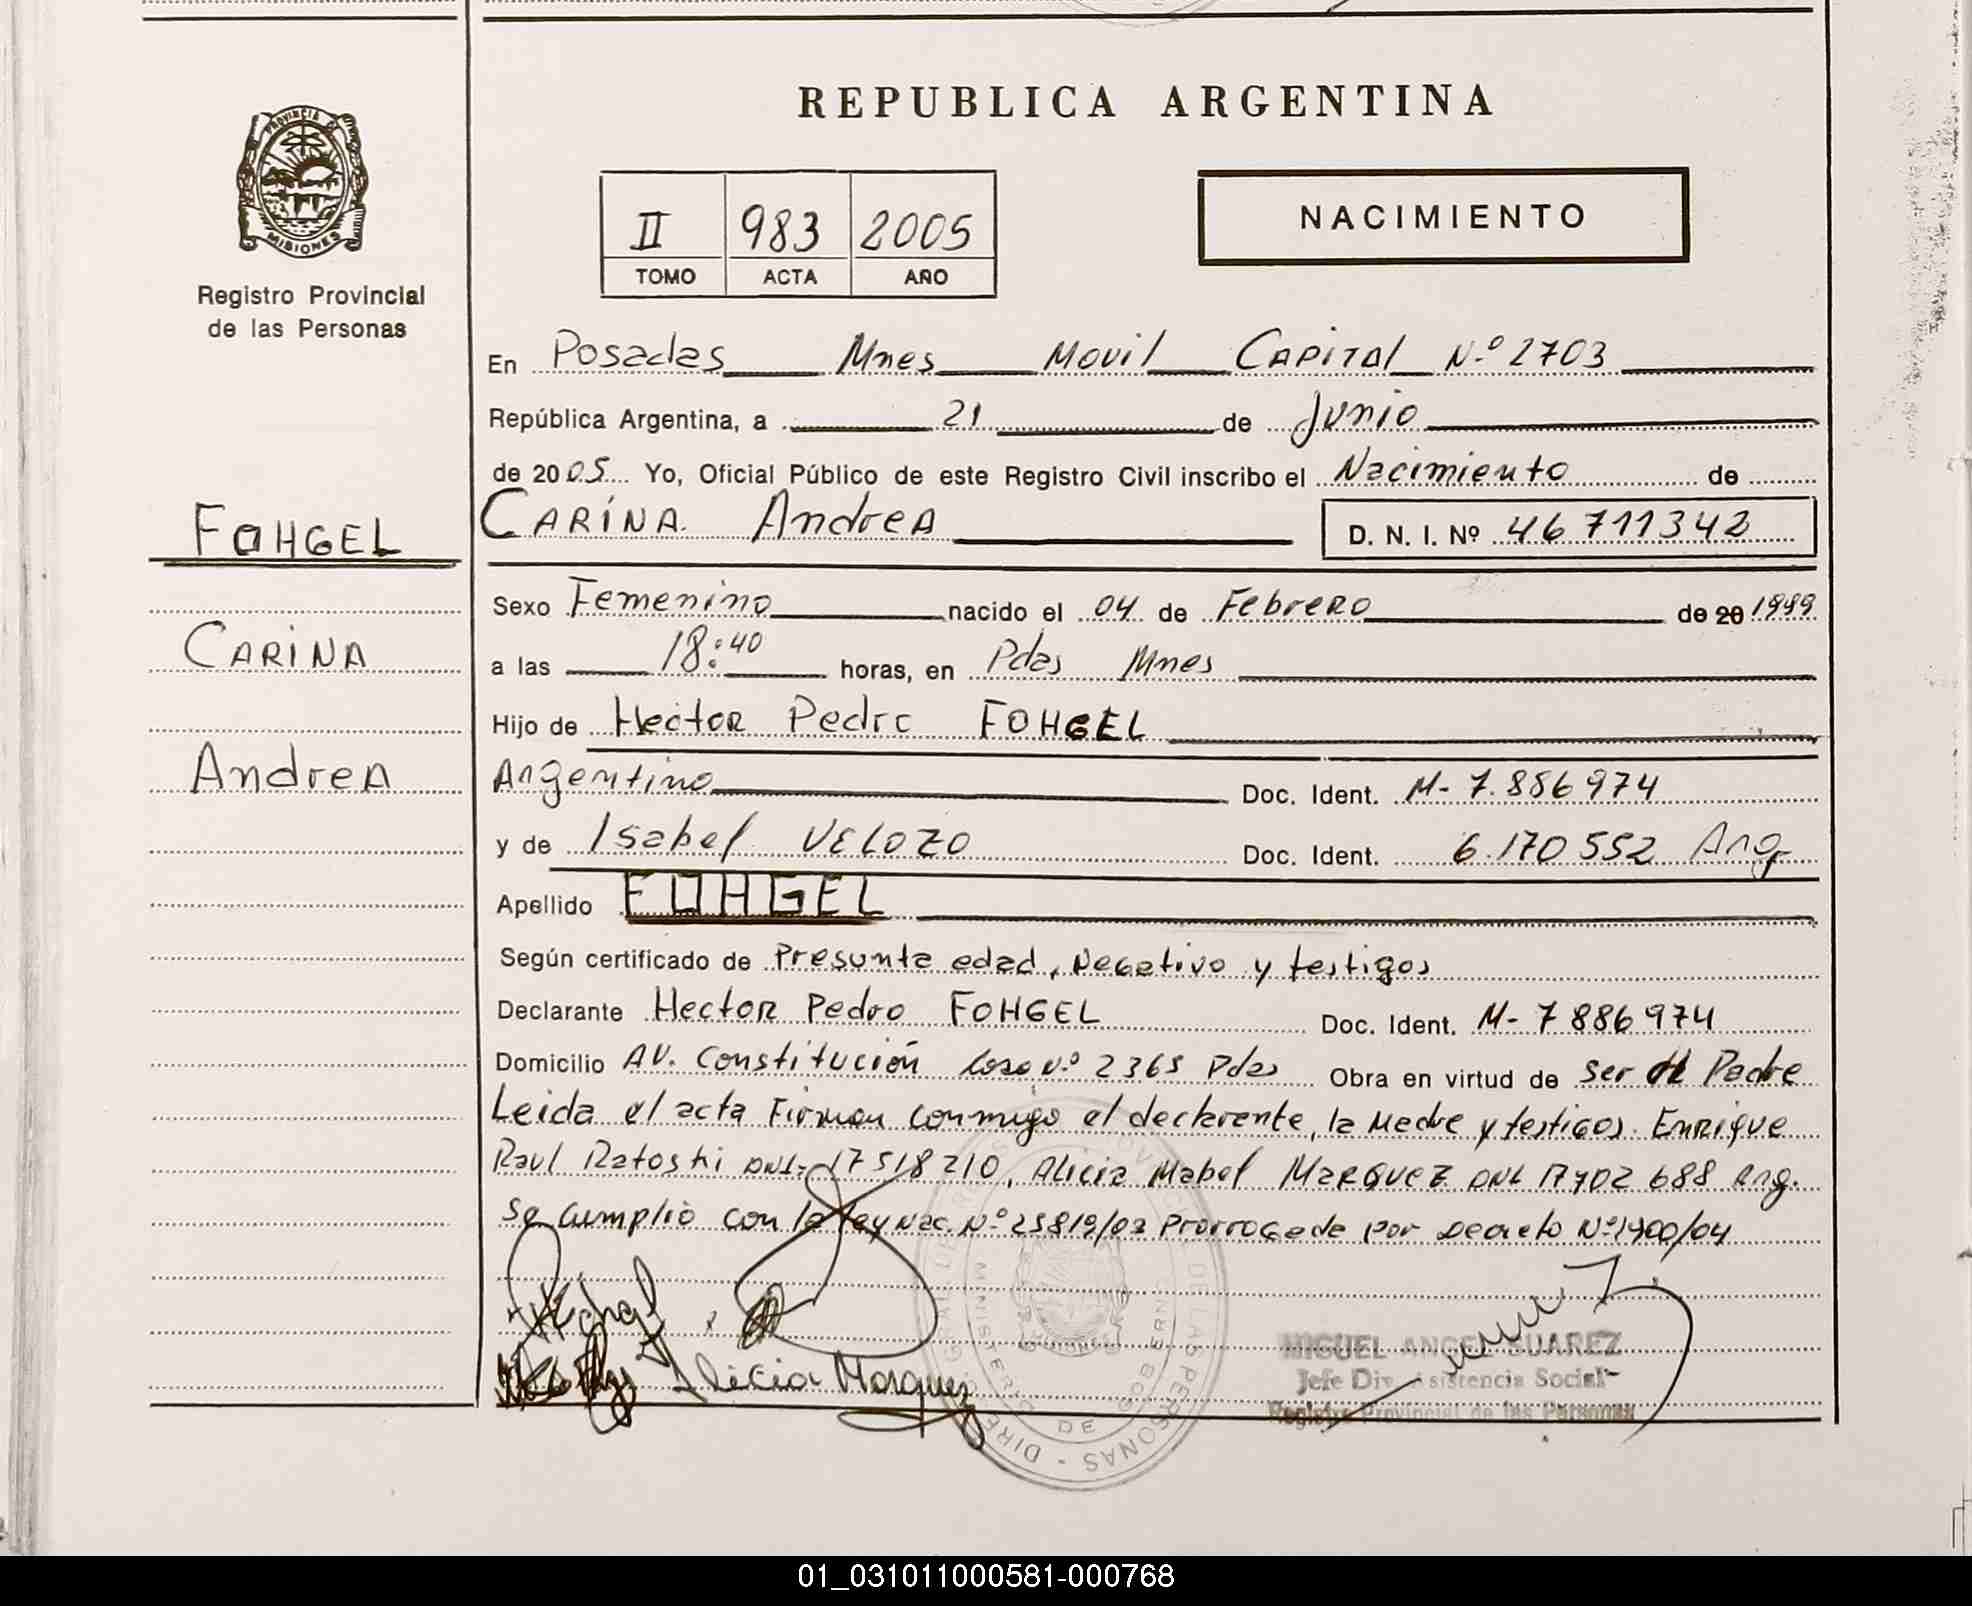 REPUBLICA ARGENTINA
PROVINCIA DE
MISIONES
Registro Provincial
de las Personas
II 983 2005
TOMO ACTA AÑO
NACIMIENTO
En Posadas Mnes Movil Capital N.º 2703
República Argentina, a 21 de Junio
de 2005 Yo, Oficial Público de este Registro Civil inscribo el Nacimiento de
FOHGEL
CARINA Andrea
D. N. I. Nº 46711342
Sexo Femenino nacido el 04 de Febrero de 20 1999
CARINA
a las 18:40 horas, en Pdas Mnes
Hijo de Hector Pedro FOHGEL
Andrea
Argentino Doc. Ident. M- 7.886974
y de Isabel VELOZO Doc. Ident. 6.170552 Arg
Apellido FOHGEL
Según certificado de Presunta edad, Negativo y testigos
Declarante Hector Pedro FOHGEL Doc. Ident. M- 7886974
Domicilio AV. Constitución Casa Nº 2365 Pdas Obra en virtud de ser el Padre
Leida el acta Firman conmigo el declarante, la Madre y testigos. Enrique
Raul Ratoski DNI- 17518210, Alicia Mabel MARQUEZ DNI 17702688 Arg.
Se cumplió con la Ley Nac. Nº 25819/03 Prorrogada por Decreto Nº 1400/04
Alicia Marquez
MIGUEL ANGEL SUAREZ
Jefe Div. Asistencia Social
Registro Provincial de las Personas
DE LAS PERSONAS - DIRE
MINISTERIO DE GOBIERNO
01_031011000581-000768